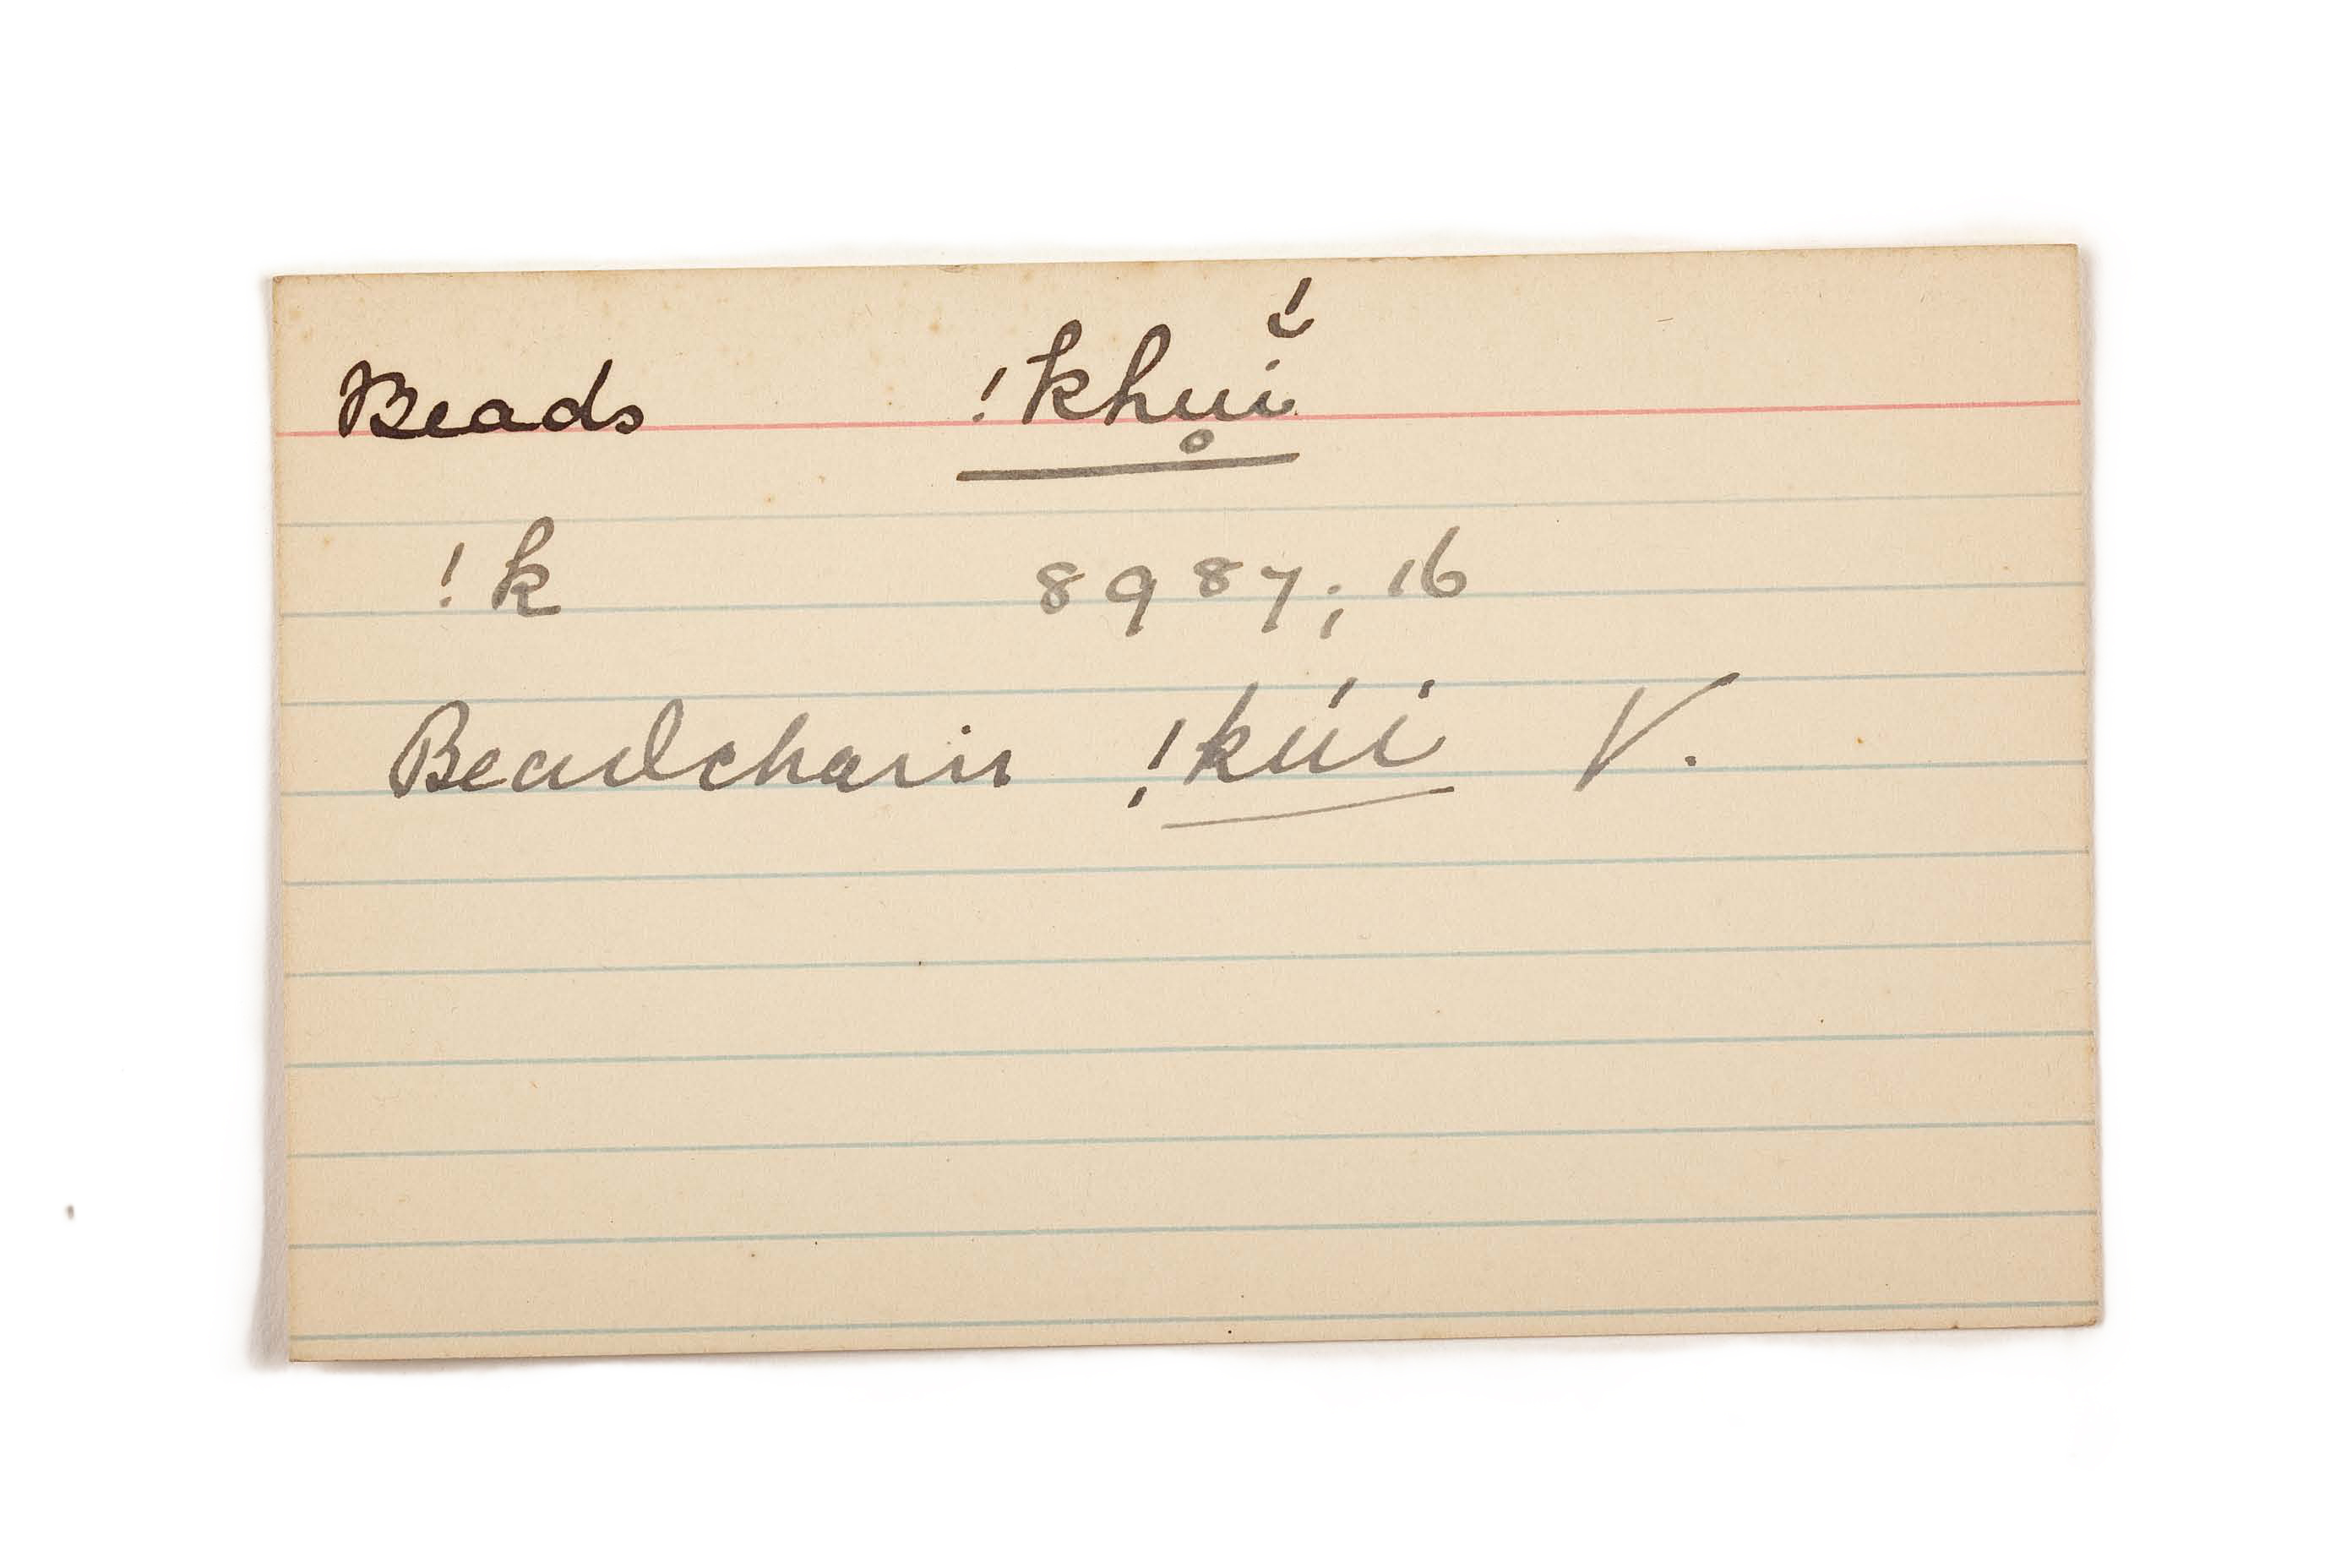 Beads !khu̥ĭ́
!k 8987; 16
Beadchain !kúi V.